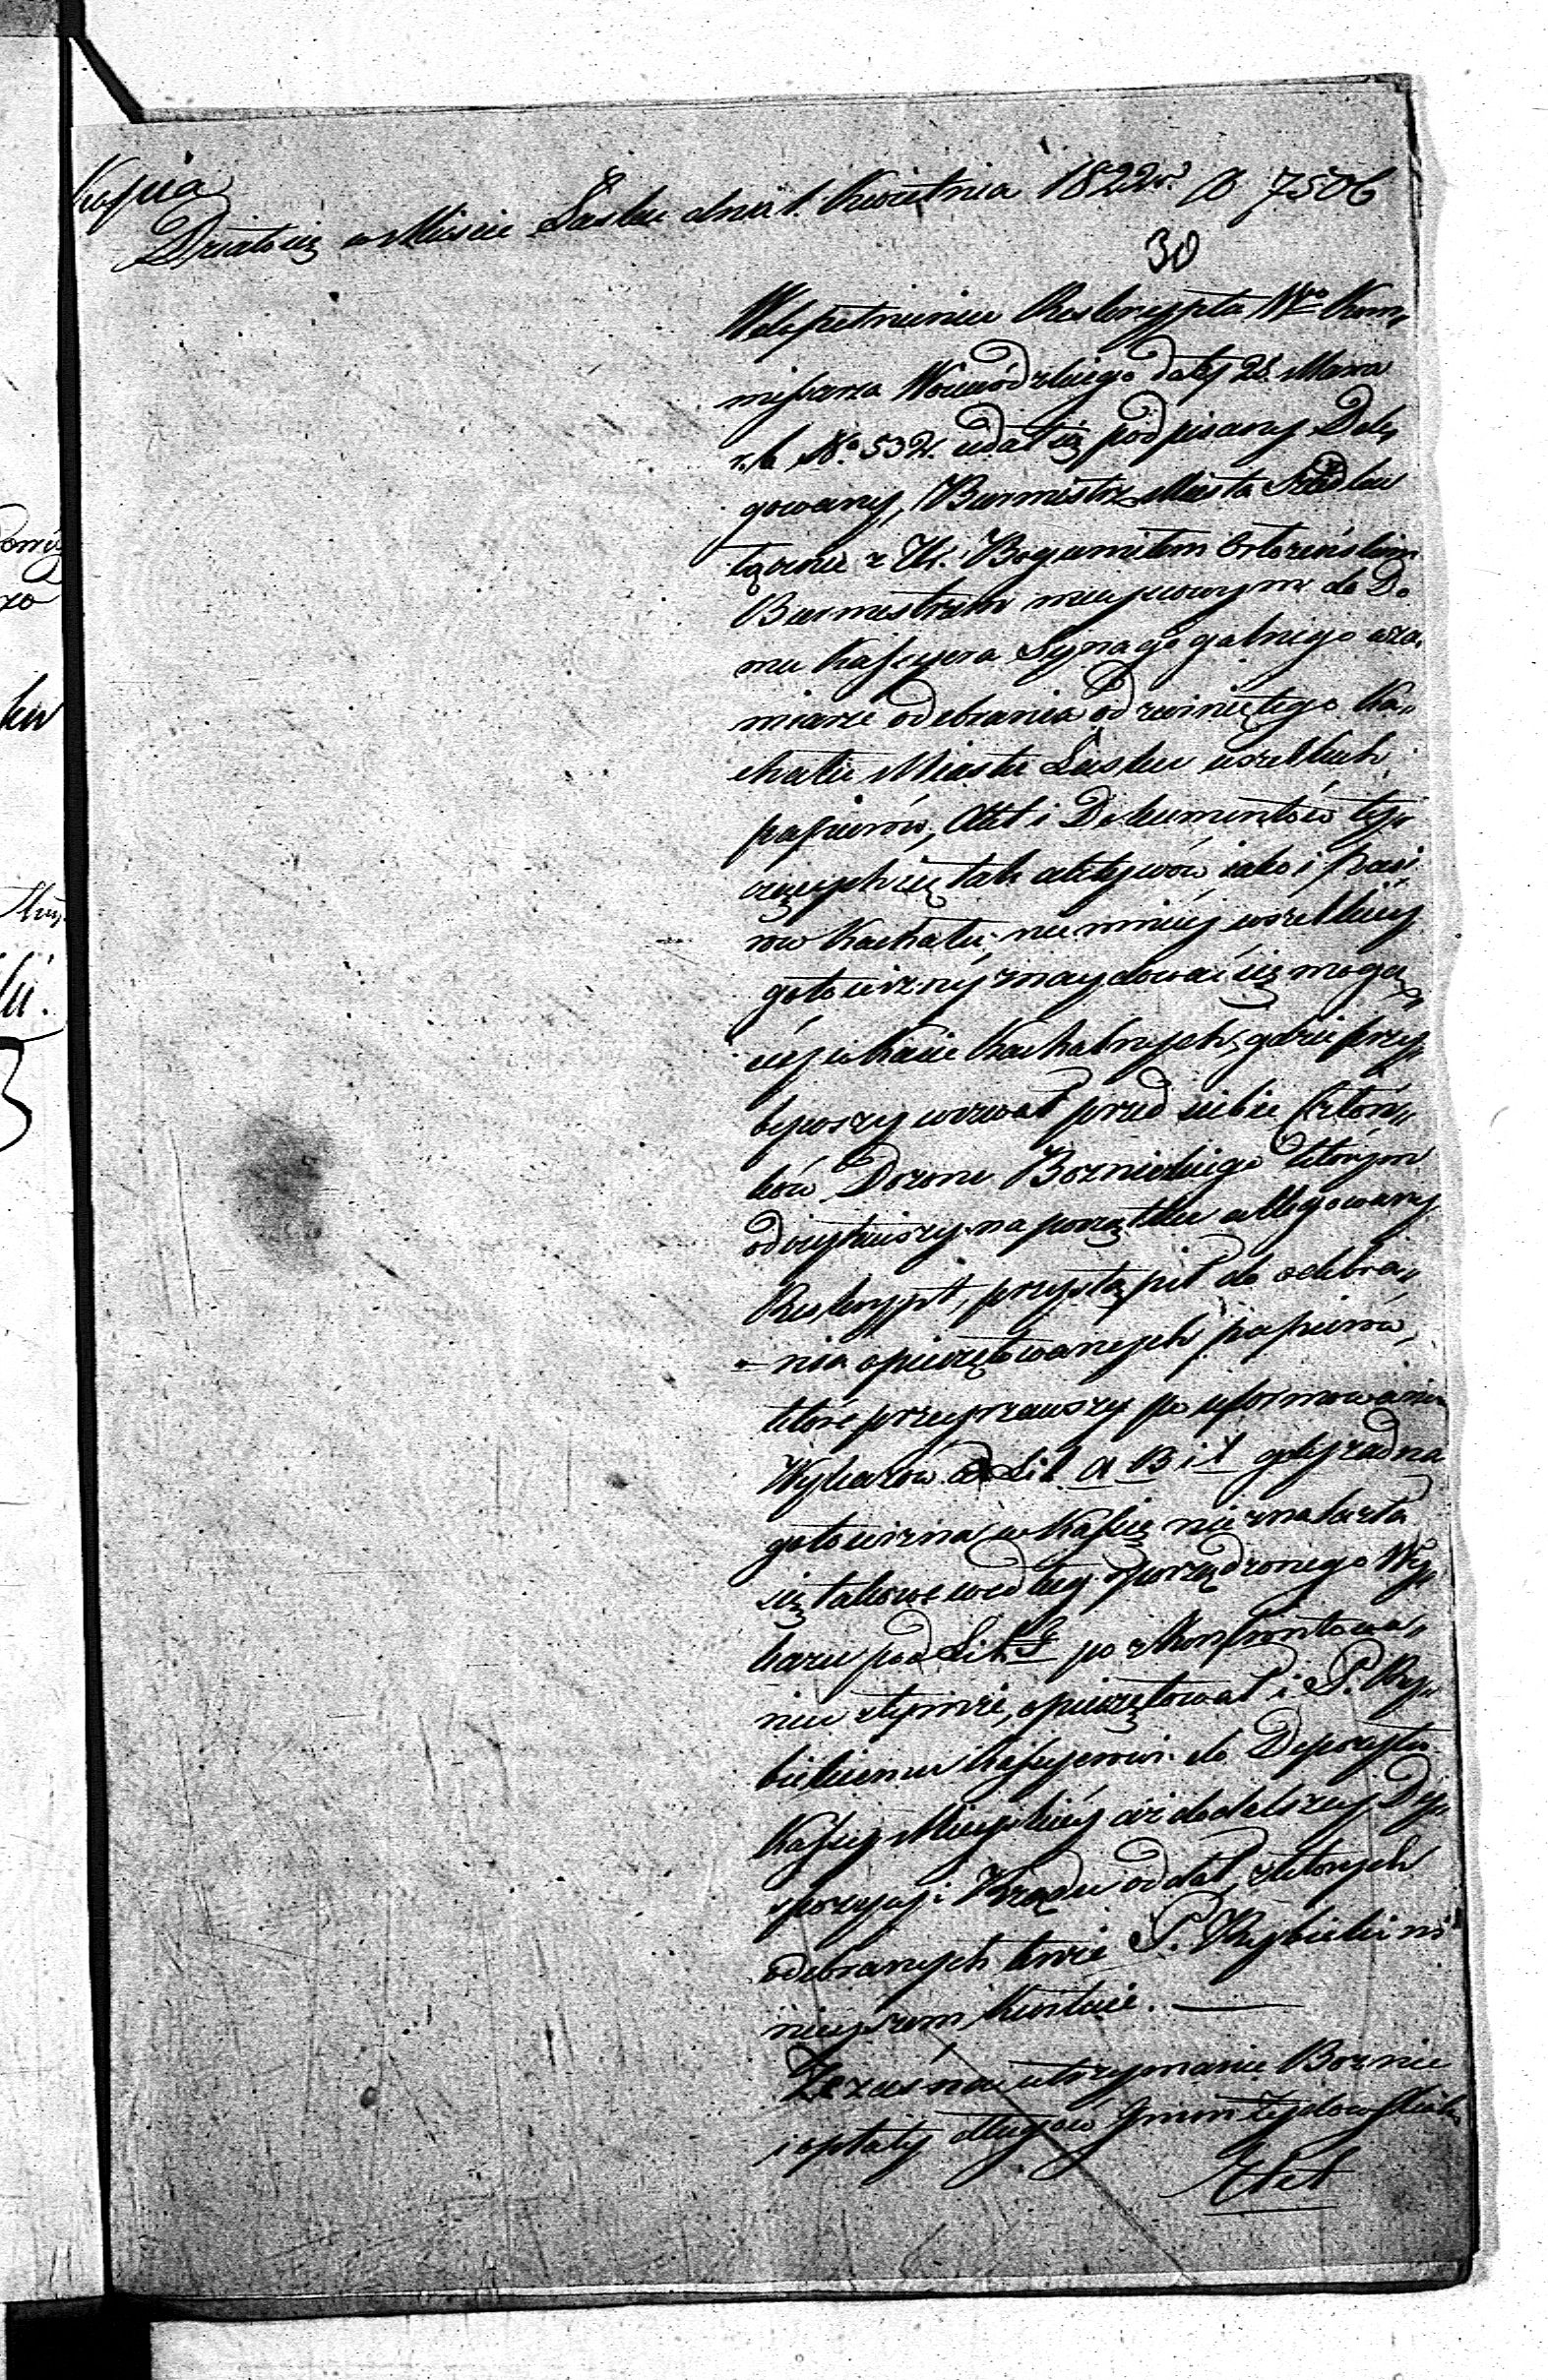 Kopiia
Działo się w Mieście Łasku dnia 1. Kwietnia 1822r. A 7506
30
W dopełnieniu Reskryptu Wgo Kom,,
missarza Woiewódzkiego daty 28. Marca
r. b. No. 532. udał się podpisany Dele,,
gowany, Burmistrz Miasta Szadku
łącznie z Ur.  Bogumiłem
Burmistrzem mieyscowym do Do,,
mu Kassyera Synagogalnego w za,,
miarze odebrania od zwiniętego Ka,,
chału Miasta Łasku wszelkich
papierów, Akt i Dokumentów tyż,,
czących się tak aktywów iako i passi
wów Kachału; niemniéj wszelkiey
gotowizny znaydować się mogą,,
céj w Kasie Kachalnych, gdzie przy,,
bywszy wezwał przed siebie Człon,,
ków Dozoru Bożniczkiego którym
odczytawszy na początku allegowany
Reskrypt, przystąpił do odebra,,
nia opieczętowanych papierów,
które przeyrzawszy po uformowaniu
Wykazów Lit A B i C gdy żadna
gotowizna w Kassie nie znalazła
się takowe według sporządzonego Wy,,
kazu pod Lit po zkonfrontowa,,
niu z tymże, opieczętował i P. Ry,,
bickiemu Kassyerowi do Depozytu
Kassy Mieyskiéy aż do dalszey Dys,,
pozycyi Rządu oddał, z których
odebranych tenże P. Rybicki ni
nieyszem kwituie. —
Że zaś na utrzymanie Bożnic
i opłaty długów Gmin Żydowskich